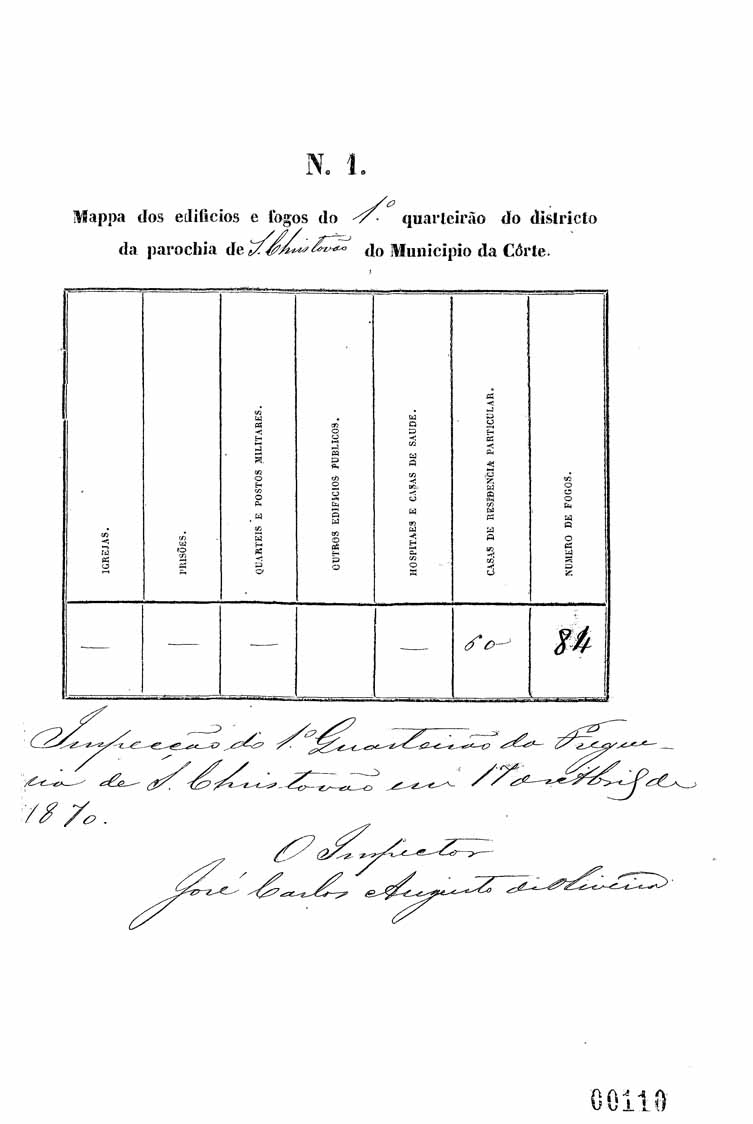 N. 1.
Mappa dos edificios e fogos do 1.º quarteirão do districto
da parochia de S. Christovão do Municipio da Côrte.
IGREJAS.
PRISÕES.
QUARTEIS E POSTOS MILITARES.
OUTROS EDIFICIOS PUBLICOS.
HOSPITAES E CASAS DE SAUDE.
CASAS DE RESIDENCIA PARTICULAR.
NUMERO DE FOGOS.
— — — — 60 84
Inspecção do 1.º Quarteirão da Fregue-
sia de S. Christovão em 17 de Abril de
1870.
O Inspector
José Carlos Augusto de Oliveira
00110